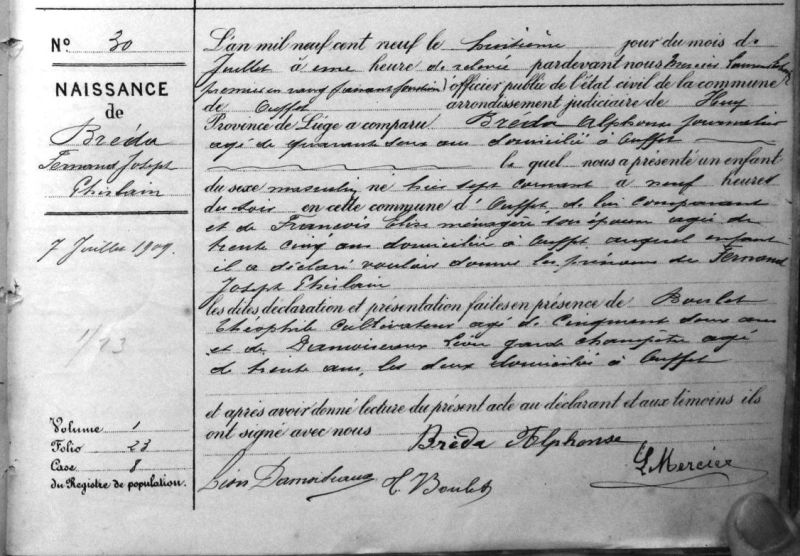 N° 30
NAISSANCE
de
Bréda
Fernand Joseph
Ghislain
7 Juillet 1909.
1/23
Volume 1
Folio 23
Case 8
du Registre de population.
L'an mil neuf cent neuf le huitième jour du mois de
Juillet à une heure de relevée pardevant nous Mercier
premier en rang faisant fonction d'officier public de l'état civil de la commune
de Ouffet arrondissement judiciaire de Huy
Province de Liége a comparu Bréda Alphonse journalier
agé de quarant deux ans domicilié à Ouffet
le quel nous a présenté un enfant
du sexe masculin né hier sept courant à neuf heures
du soir en cette commune d'Ouffet de lui comparant
et de François Elise ménagère son épouse agée de
trente cinq ans domiciliée à Ouffet auquel enfant
il a déclaré vouloir donner les prénoms de Fernand
Joseph Ghislain
les dites déclaration et présentation faites en présence de Boulet
Théophile cultivateur agé de cinquant deux ans
et de Damoiseaux Léon garde champêtre agé
de trente ans, les deux domiciliés à Ouffet
et après avoir donné lecture du présent acte au déclarant et aux témoins ils
ont signé avec nous Bréda Alphonse
Léon Damoiseaux T. Boulet
L Mercier